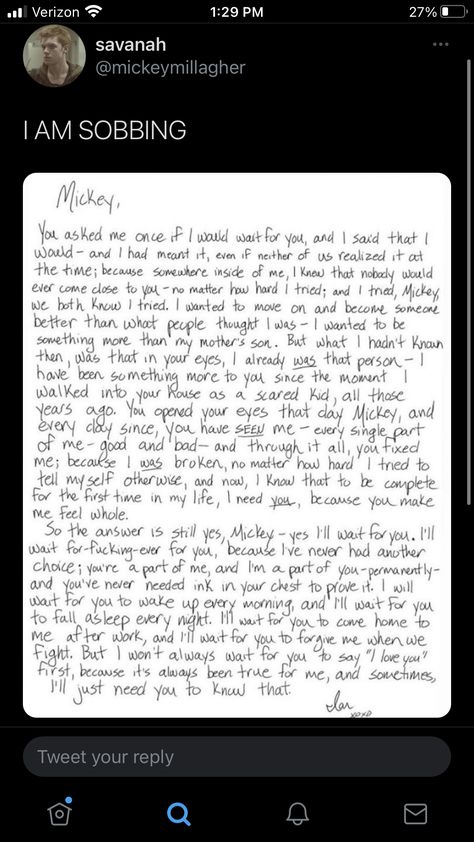 Verizon 1:29 PM 27%
savanah
@mickeymillagher
I AM SOBBING
Mickey,
You asked me once if I would wait for you, and I said that I
would - and I had meant it, even if neither of us realized it at
the time; because somewhere inside of me, I knew that nobody would
ever come close to you - no matter how hard I tried; and I tried, Mickey,
we both know I tried. I wanted to move on and become someone
better than what people thought I was - I wanted to be
something more than my mother's son. But what I hadn't known
then, was that in your eyes, I already was that person - I
have been something more to you since the moment I
walked into your house as a scared kid, all those
years ago. You opened your eyes that day Mickey, and
every day since, you have SEEN me - every single part
of me - good and bad - and through it all, you fixed
me; because I was broken, no matter how hard I tried to
tell myself otherwise, and now, I know that to be complete
for the first time in my life, I need you, because you make
me feel whole.
So the answer is still yes, Mickey - yes I'll wait for you. I'll
wait for-fucking-ever for you, because I've never had another
choice; you're a part of me, and I'm a part of you - permanently -
and you've never needed ink in your chest to prove it. I will
wait for you to wake up every morning, and I'll wait for you
to fall asleep every night. I'll wait for you to come home to
me after work, and I'll wait for you to forgive me when we
fight. But I won't always wait for you to say "I love you"
first, because it's always been true for me, and sometimes,
I'll just need you to know that.
Ian
xoxo
Tweet your reply